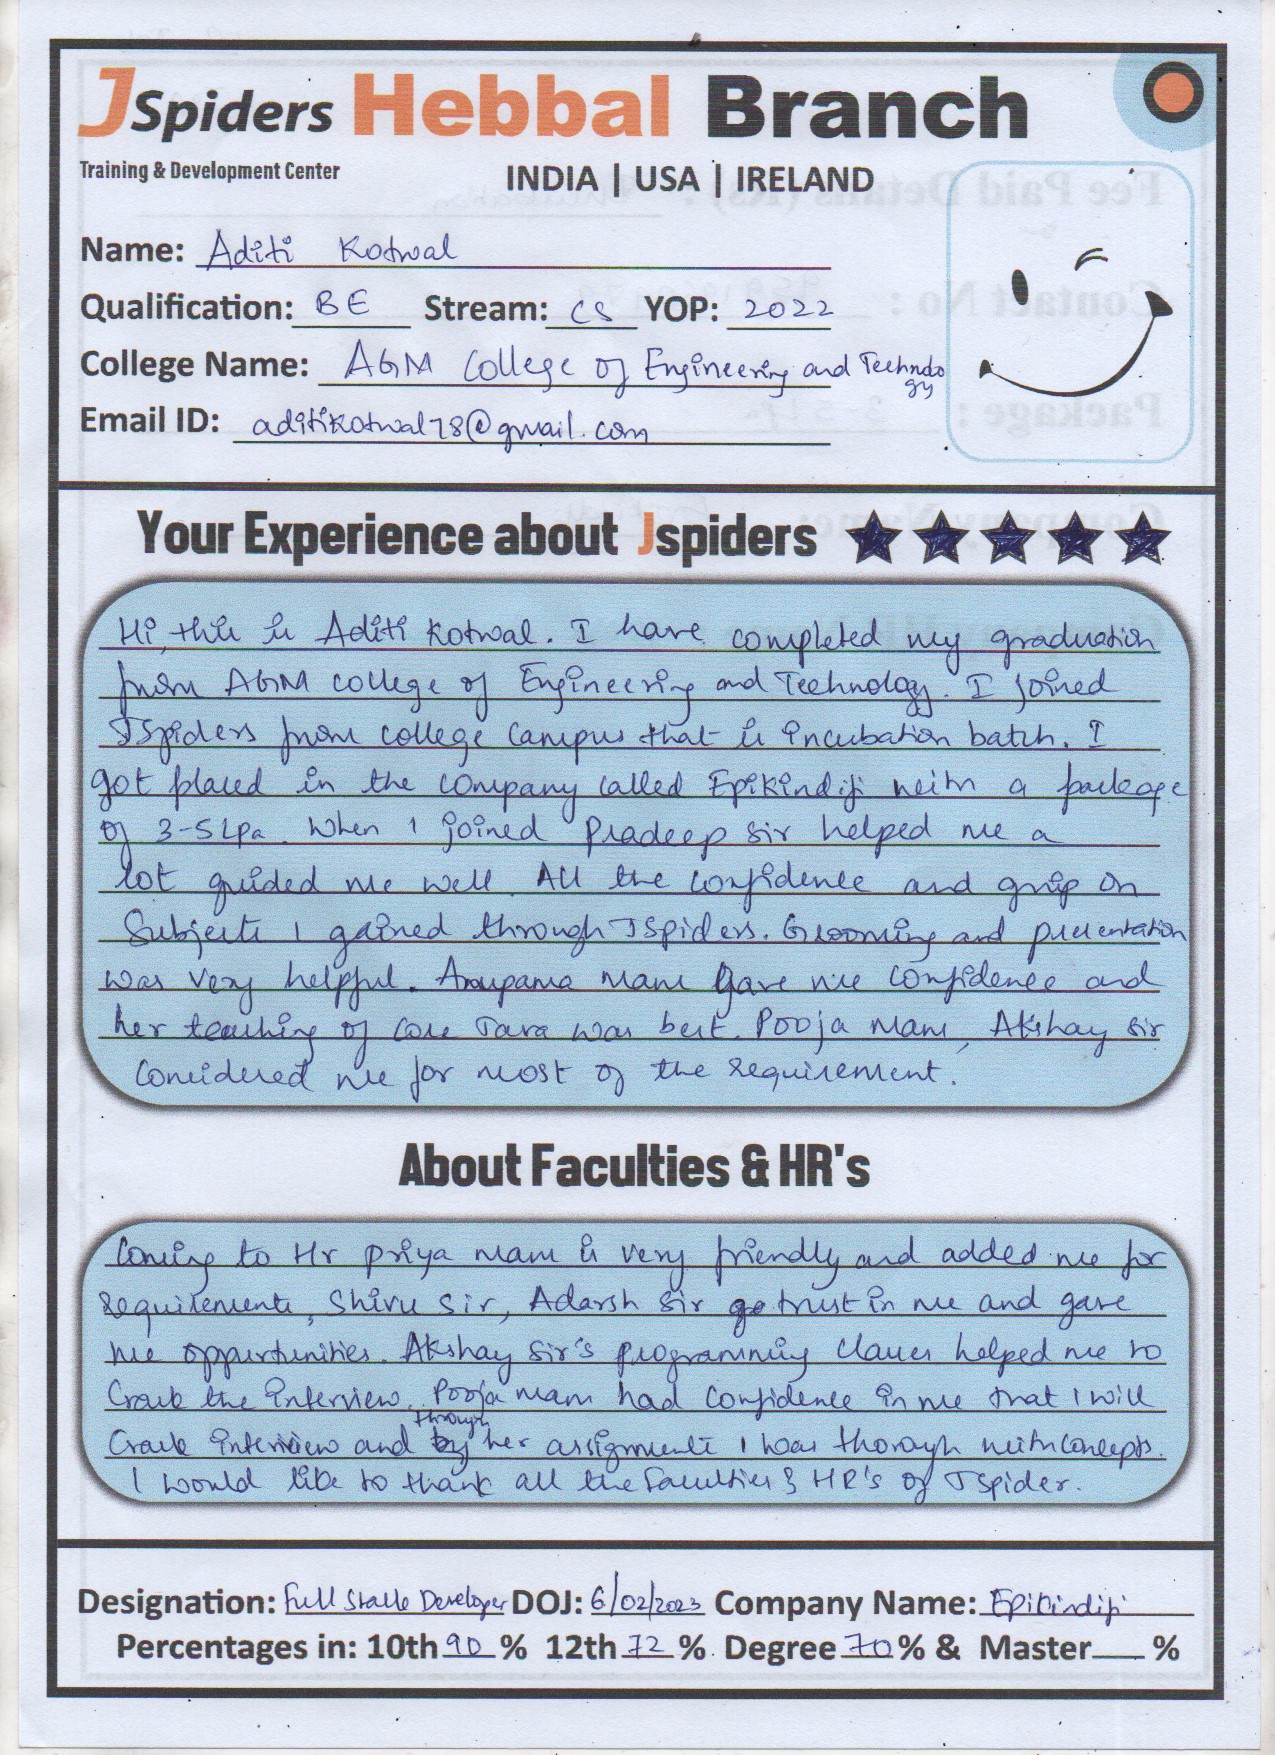 JSpiders Hebbal Branch
Training & Development Center
INDIA | USA | IRELAND
Name: Aditi Kotwal
Qualification: BE Stream: CS YOP: 2022
College Name: AGM College of Engineering and Technolo
gy
Email ID: aditikotwal78@gmail.com
Your Experience about Jspiders
Hi, this is Aditi Kotwal. I have completed my graduation
from AGM college of Engineering and Technology. I joined
JSpiders from college campus that is incubation batch. I
got placed in the company called Epikindifi with a package
of 3-5 Lpa. When I joined Pradeep sir helped me a
lot guided me well. All the confidence and grip on
Subjects I gained through JSpiders. Grooming and presentation
was very helpful. Anupama Mam gave me confidence and
her teaching of Core Java was best. Pooja Mam, Akshay sir
Considered me for most of the requirement.
About Faculties & HR's
Coming to Hr Priya mam is very friendly and added me for
requirements, Shivu sir, Adarsh sir trust in me and gave
me oppurtunities. Akshay sir's programming classes helped me to
Crack the interview. Pooja mam had confidence in me that I will
through
Crack interview and her assignments I was thorough with concepts.
I would like to thank all the Faculties & HR's of JSpider.
Designation: Full Stack Developer DOJ: 6/02/2023 Company Name: Epikindifi
Percentages in: 10th 90 % 12th 72 % Degree 70 % & Master___ %